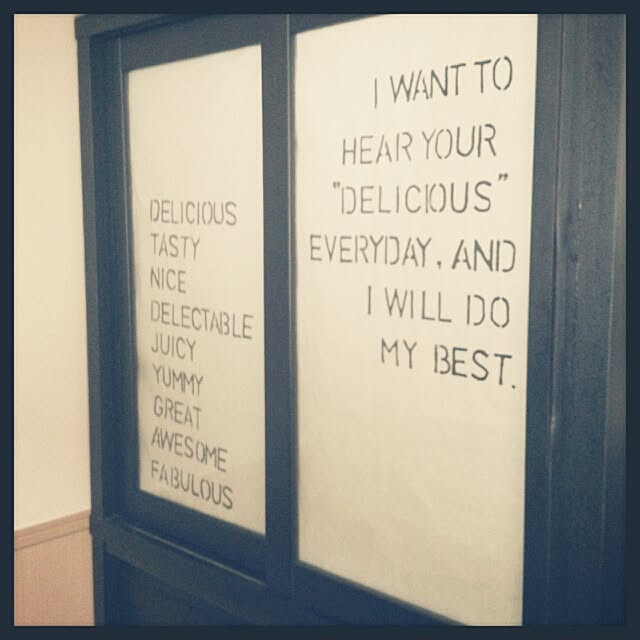 DELICIOUS
TASTY
NICE
DELECTABLE
JUICY
YUMMY
GREAT
AWESOME
FABULOUS
I WANT TO
HEAR YOUR
"DELICIOUS"
EVERYDAY, AND
I WILL DO
MY BEST.